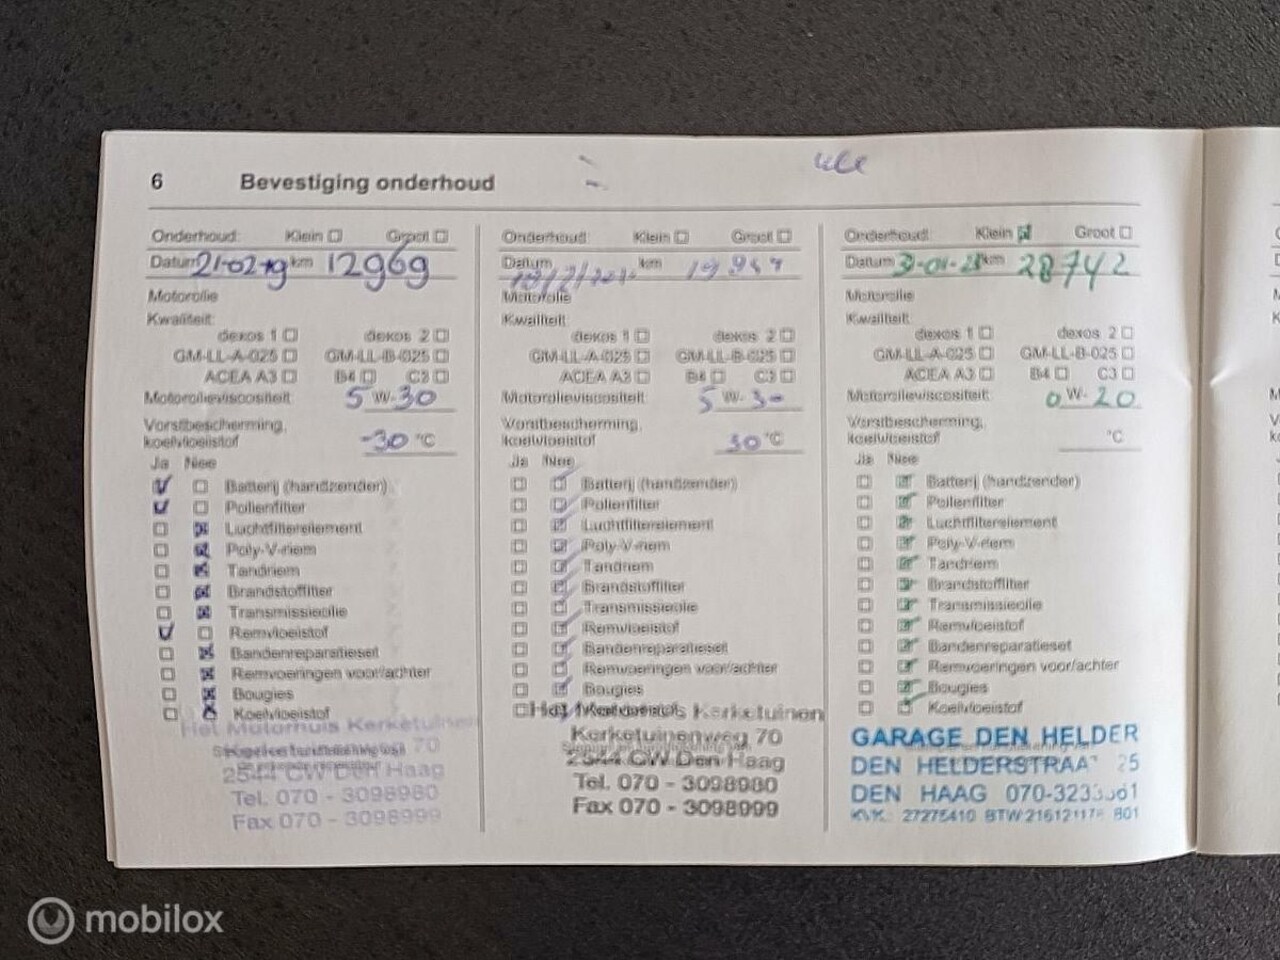 6 Bevestiging onderhoud
Onderhoud: Klein Groot
Datum 21-02-19 km 12969
Motorolie
Kwaliteit:
dexos 1 dexos 2
GM-LL-A-025 GM-LL-B-025
ACEA A3 B4 C3
Motorolieviscositeit 5 W- 30
Vorstbescherming,
koelvloeistof -30 °C
Ja Nee
Batterij (handzender)
Pollenfilter
Luchtfilterelement
Poly-V-riem
Tandriem
Brandstoffilter
Transmissieolie
Remvloeistof
Bandenreparatieset
Remvoeringen voor/achter
Bougies
Koelvloeistof
Het Motorhuis Kerketuinen
Kerketuinenweg 70
2544 CW Den Haag
Tel. 070 - 3098980
Fax 070 - 3098999
Onderhoud: Klein Groot
Datum km
Motorolie
Kwaliteit:
dexos 1 dexos 2
GM-LL-A-025 GM-LL-B-025
ACEA A3 B4 C3
Motorolieviscositeit 5 W- 30
Vorstbescherming,
koelvloeistof 30 °C
Ja Nee
Batterij (handzender)
Pollenfilter
Luchtfilterelement
Poly-V-riem
Tandriem
Brandstoffilter
Transmissieolie
Remvloeistof
Bandenreparatieset
Remvoeringen voor/achter
Bougies
Koelvloeistof
Het Motorhuis Kerketuinen
Kerketuinenweg 70
2544 CW Den Haag
Tel. 070 - 3098980
Fax 070 - 3098999
Onderhoud: Klein Groot
Datum km 28742
Motorolie
Kwaliteit:
dexos 1 dexos 2
GM-LL-A-025 GM-LL-B-025
ACEA A3 B4 C3
Motorolieviscositeit 0 W- 20
Vorstbescherming,
koelvloeistof °C
Ja Nee
Batterij (handzender)
Pollenfilter
Luchtfilterelement
Poly-V-riem
Tandriem
Brandstoffilter
Transmissieolie
Remvloeistof
Bandenreparatieset
Remvoeringen voor/achter
Bougies
Koelvloeistof
GARAGE DEN HELDER
DEN HELDERSTRAAT 25
DEN HAAG
KVK. 27275410 BTW
mobilox